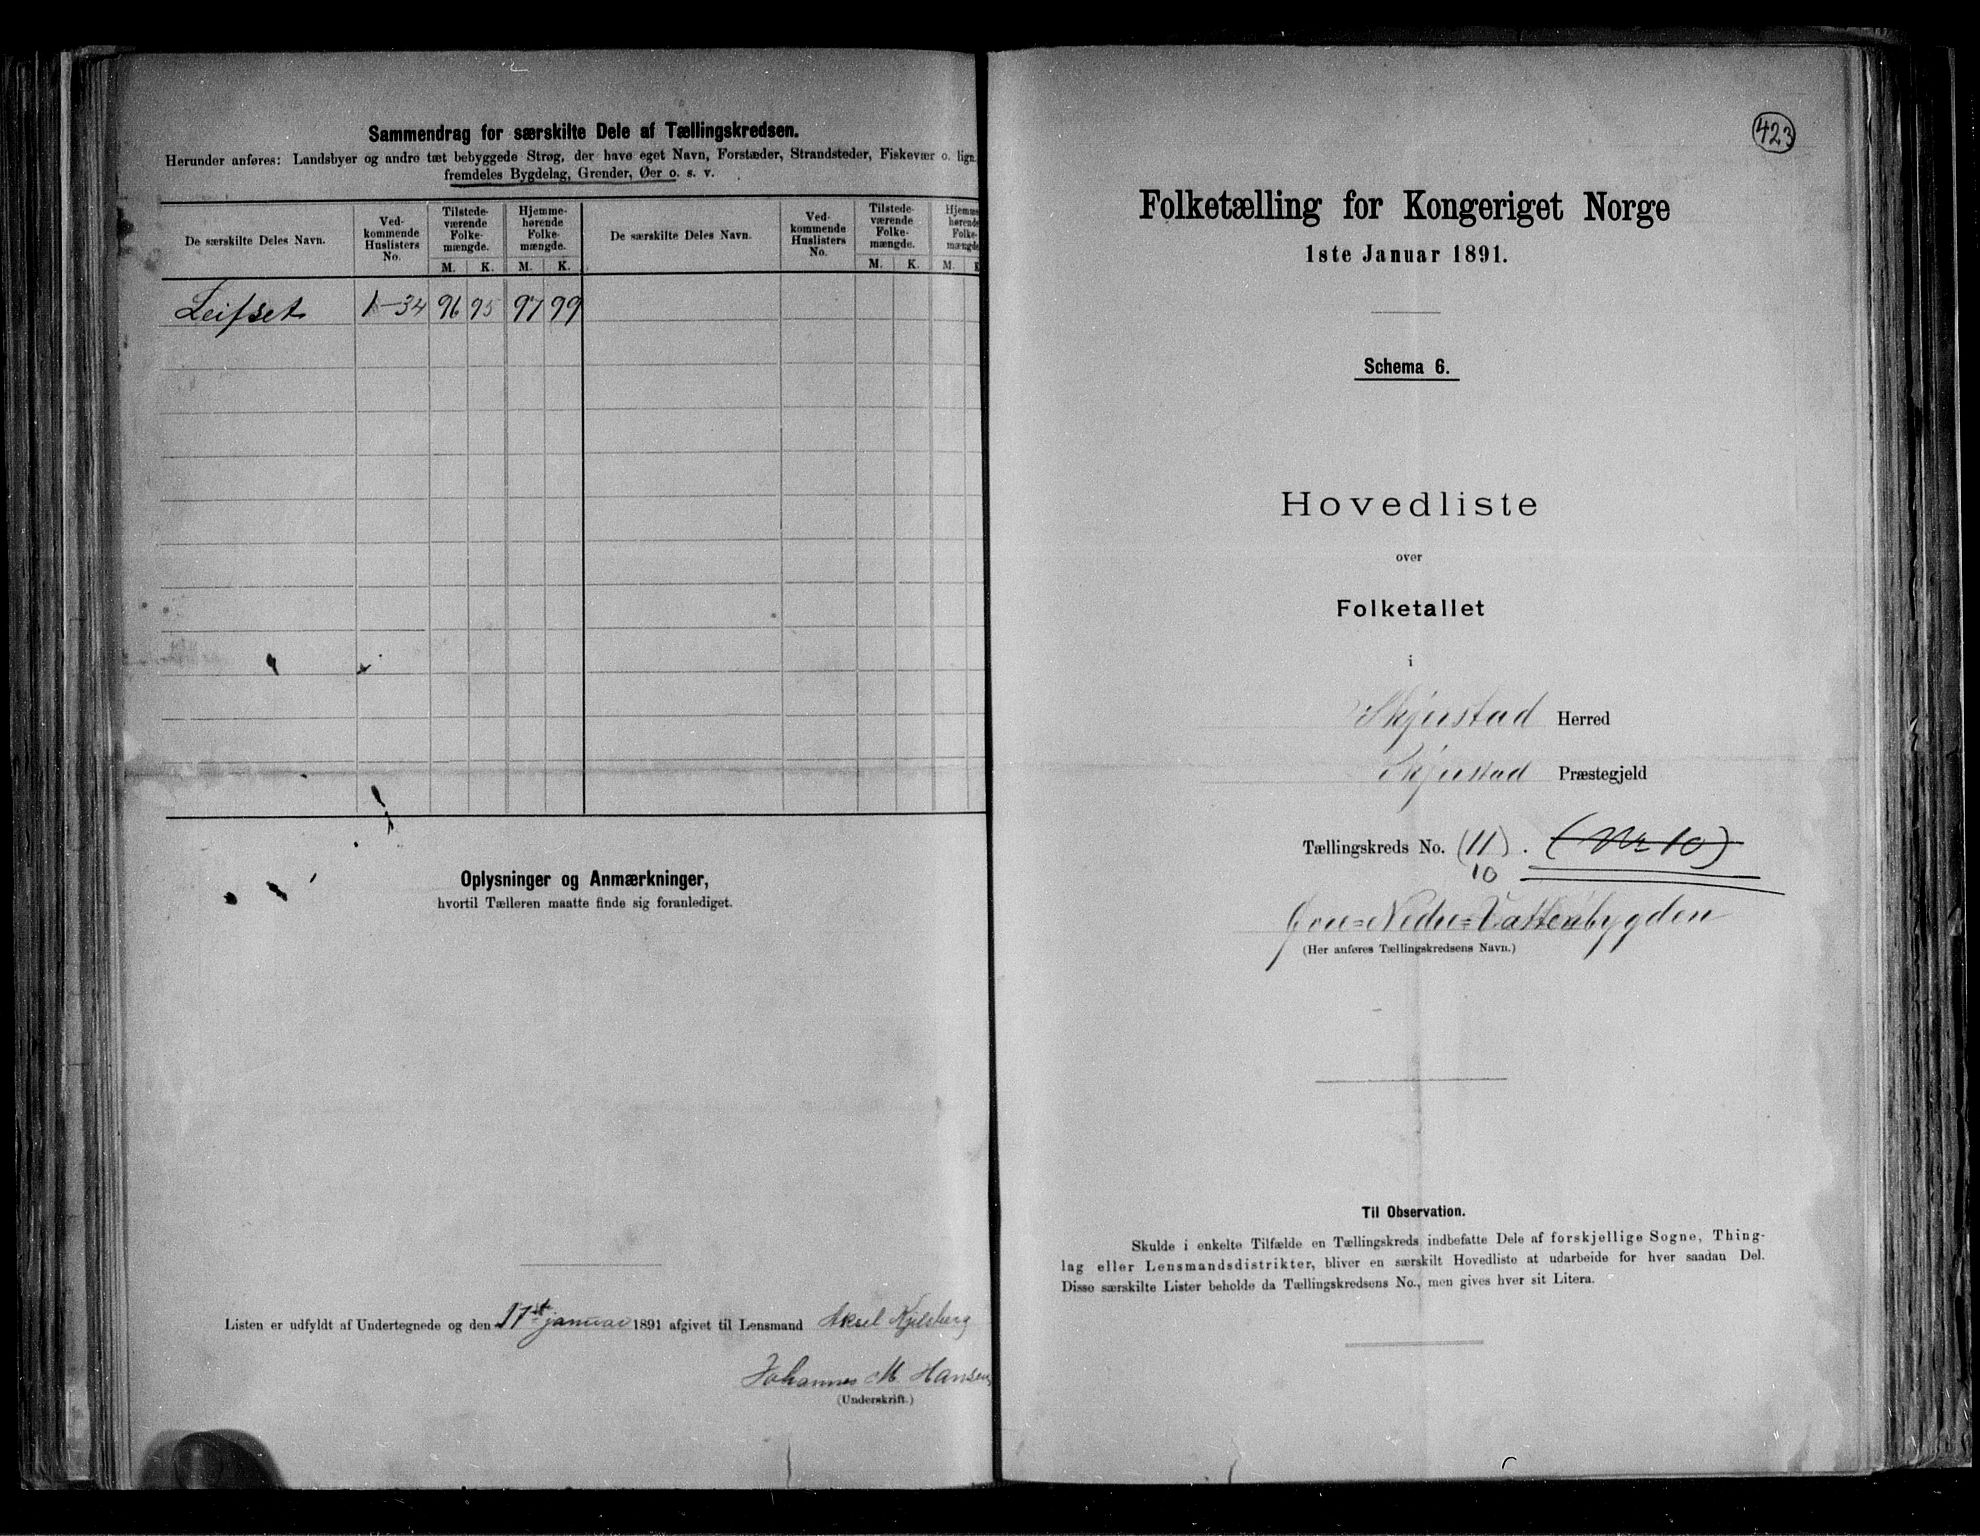 Sammendrag for særskilte Dele af Tællingskredsen.
Herunder anføres: Landsbyer og andre tæt bebyggede Strøg, der have eget Navn, Forstæder, Strandsteder, Fiskevær o. lign.
fremdeles Bygdelag, Grender, Øer o. s. v.
De særskilte Deles Navn. Ved-kommende Huslisters No. Tilstede-værende Folke-mængde. Hjemme-hørende Folke-mængde. De særskilte Deles Navn. Ved-kommende Huslisters No. Tilstede-værende Folke-mængde. Hjemme-hørende Folke-mængde
M. K. M. K. M. K. M. K
Leifset 1-34 96 95 97 99
Oplysninger og Anmærkninger,
hvortil Tælleren maatte finde sig foranlediget.
Listen er udfyldt af Undertegnede og den 17de januar 1891 afgivet til Lensmand Aksel Kjelsberg
Johannes M Hansen
(Underskrift.)
423
Folketælling for Kongeriget Norge
1ste Januar 1891.
Schema 6.
Hovedliste
over
Folketallet
i
Skjerstad Herred
Skjerstad Præstegjeld
Tællingskreds No. (11). (Nr 10)
10
Nedre=Vattenbygden
(Her anføres Tællingskredsens Navn.)
Til Observation.
Skulde i enkelte Tilfælde en Tællingskreds indbefatte Dele af forskjellige Sogne, Thing-
lag eller Lensmandsdistrikter, bliver en særskilt Hovedliste at udarbeide for hver saadan Del.
Disse særskilte Lister beholde da Tællingskredsens No., men gives hver sit Litera.